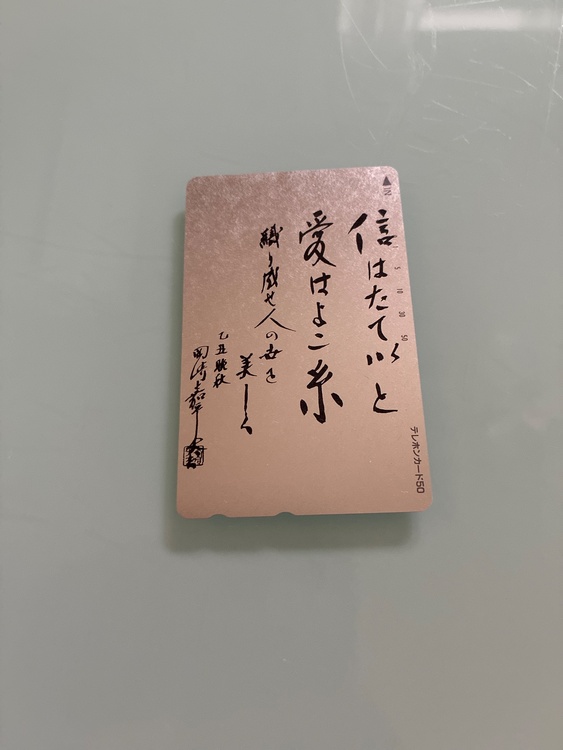 信はたていと
愛はよこ糸
織り成せ人の世を
美しく
乙丑晩秋
岡崎嘉平太
IN
5
10
30
50
テレホンカード50